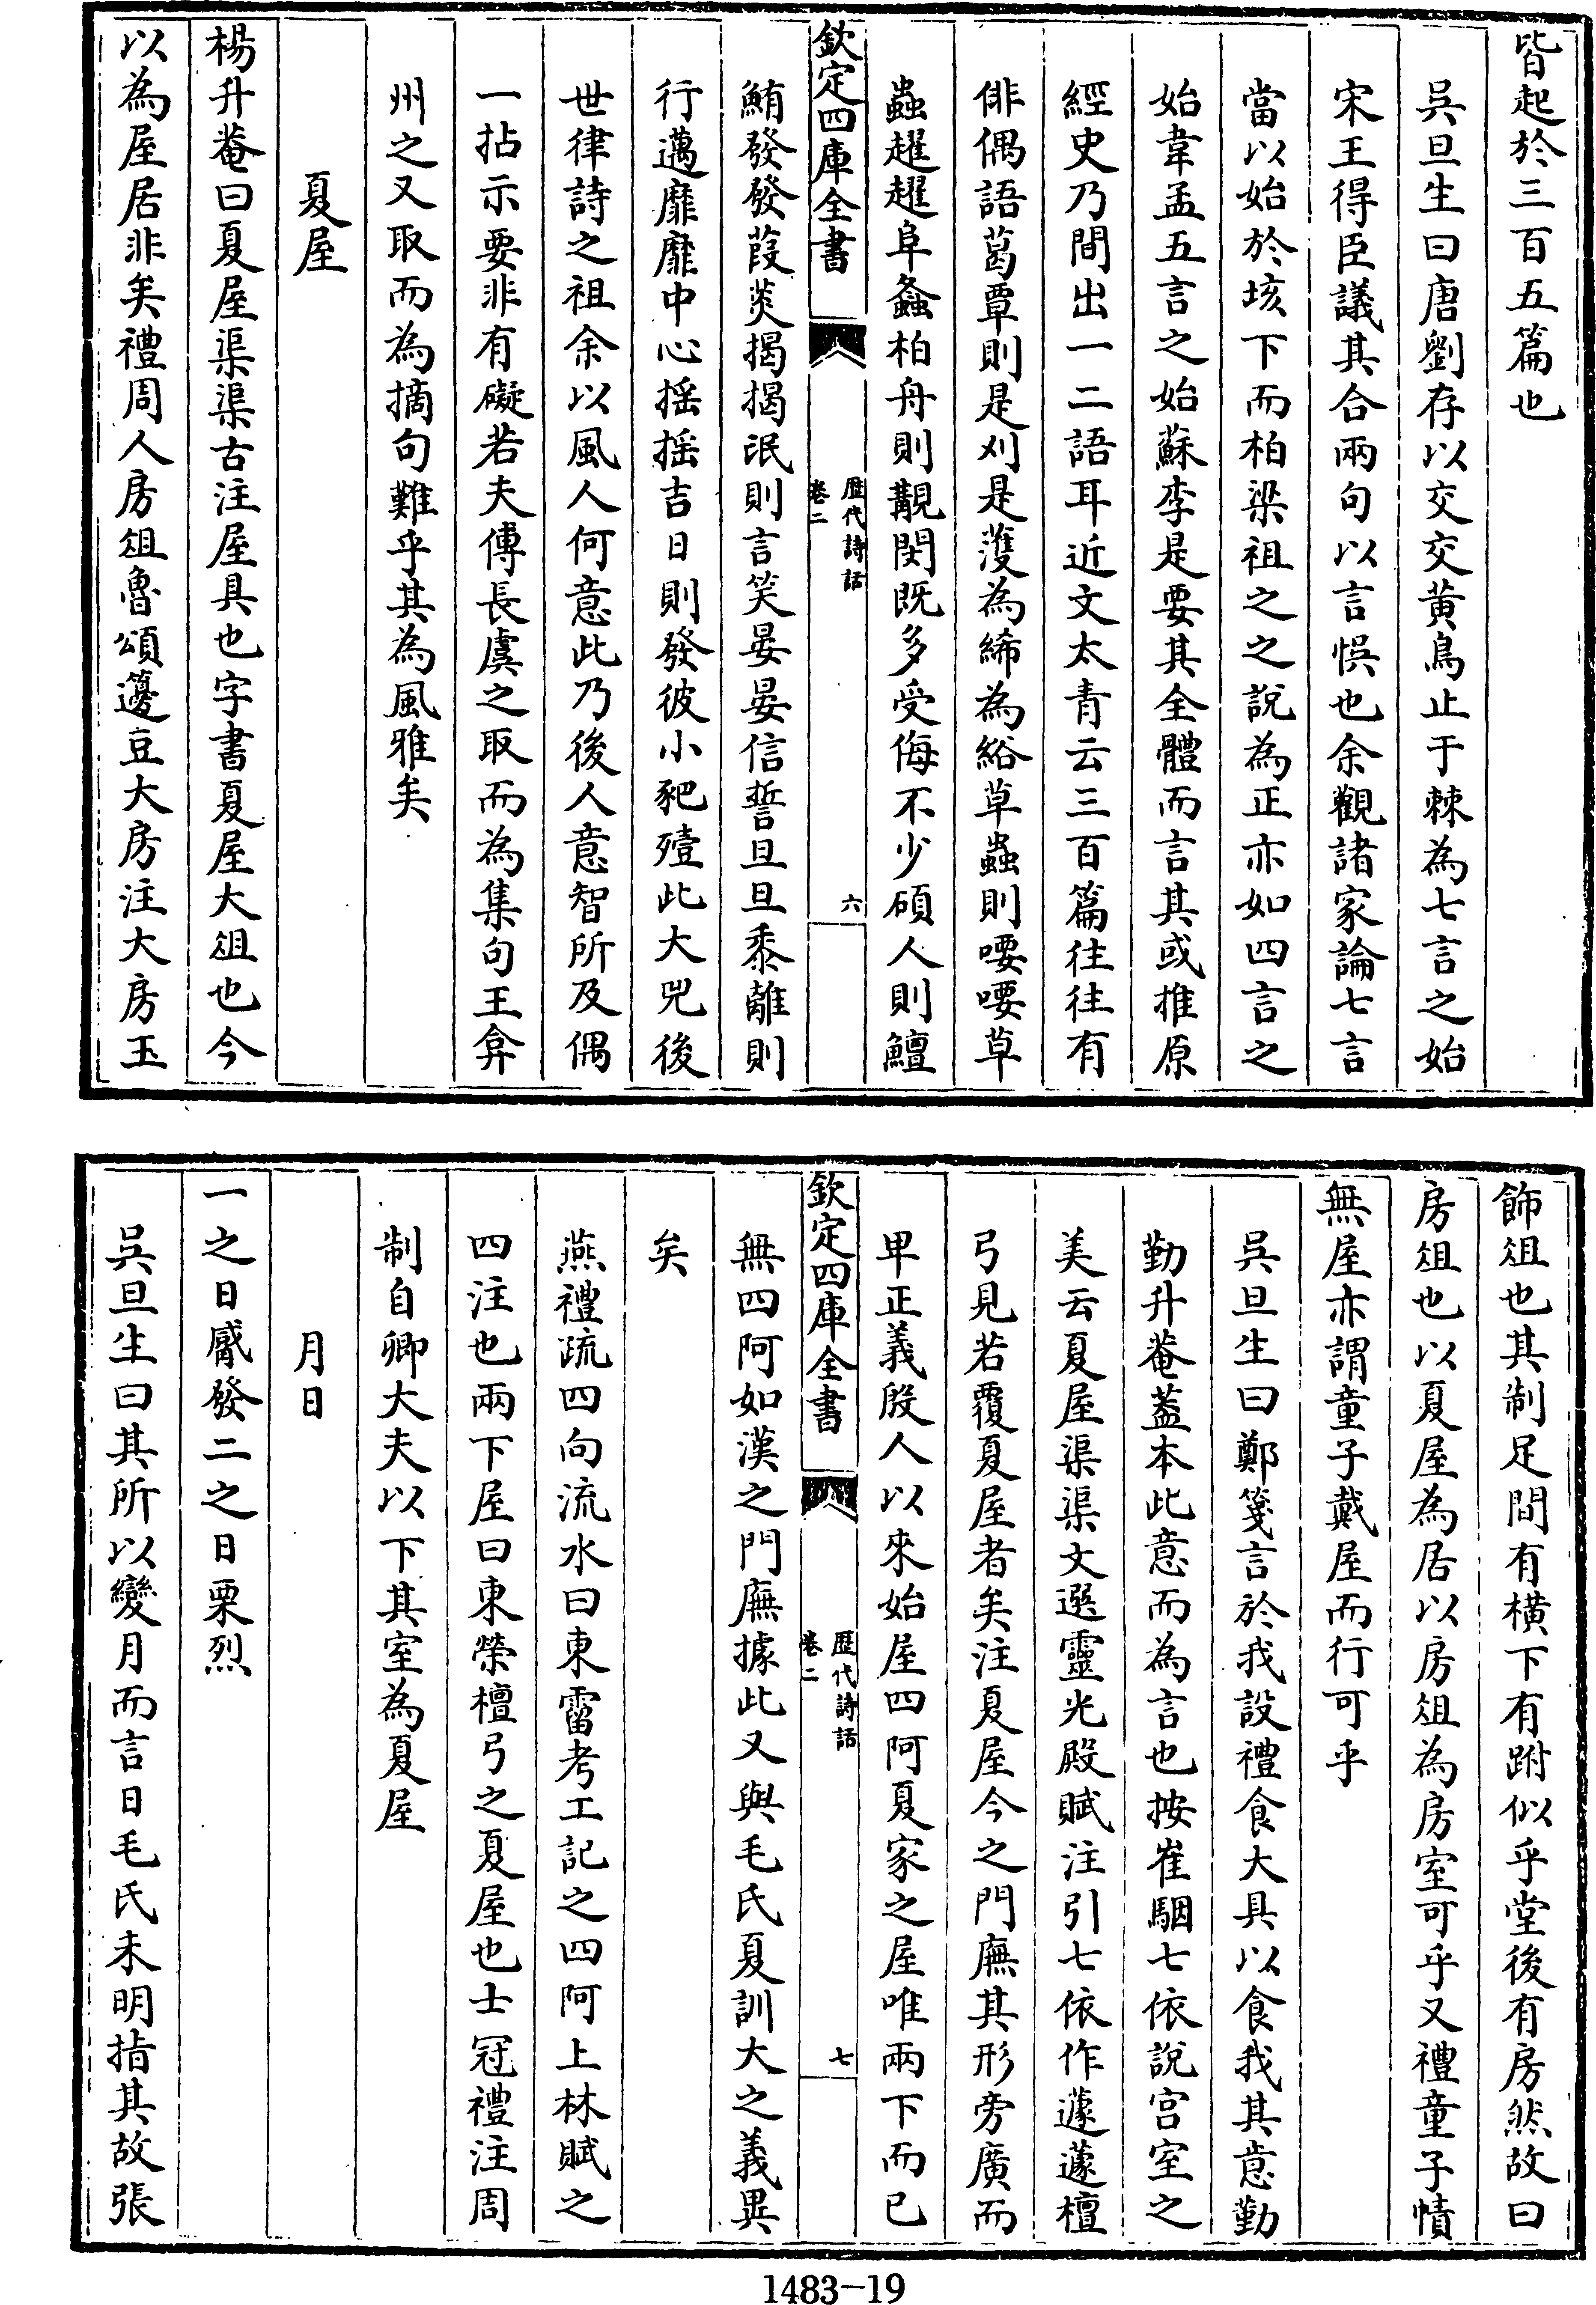 皆起於三百五篇也
吳旦生曰唐劉存以交交黄鳥止于棘為七言之始
宋王得臣議其合兩句以言悞也余觀諸家論七言
當以始於垓下而柏梁祖之之說為正亦如四言之
始韋孟五言之始蘇李是要其全體而言其或推原
經史乃間出一二語耳近文太青云三百篇往往有
俳偶語葛覃則是刈是濩為絺為綌草蟲則喓喓草
蟲趯趯阜螽柏舟則覯閔既多受侮不少碩人則鱣
欽定四庫全書
歷代詩話
卷二
六
鮪發發葭菼揭揭氓則言笑晏晏信誓旦旦黍離則
行邁靡靡中心揺揺吉日則發彼小豝殪此大兕後
世律詩之祖余以風人何意此乃後人意智所及偶
一拈示要非有礙若夫傅長虞之取而為集句王弇
州之又取而為摘句難乎其為風雅矣
夏屋
楊升菴曰夏屋渠渠古注屋具也字書夏屋大俎也今
以為屋居非矣禮周人房俎魯頌籩豆大房注大房玉
飾俎也其制足間有橫下有跗似乎堂後有房然故曰
房俎也以夏屋為居以房俎為房室可乎又禮童子幘
無屋亦謂童子戴屋而行可乎
吳旦生曰鄭箋言於我設禮食大具以食我其意勤
勤升菴蓋本此意而為言也按崔駰七依說宫室之
美云夏屋渠渠文選靈光殿賦注引七依作蘧蘧檀
弓見若覆夏屋者矣注夏屋今之門廡其形旁廣而
甲正義殷人以來始屋四阿夏家之屋唯兩下而已
欽定四庫全書
歷代詩話
卷二
七
無四阿如漢之門廡據此又與毛氏夏訓大之義異
矣
燕禮疏四向流水曰東霤考工記之四阿上林賦之
四注也兩下屋曰東榮檀弓之夏屋也士冠禮注周
制自卿大夫以下其室為夏屋
月日
一之日觱發二之日栗烈
吳旦生曰其所以變月而言日毛氏未明指其故張
1483-19